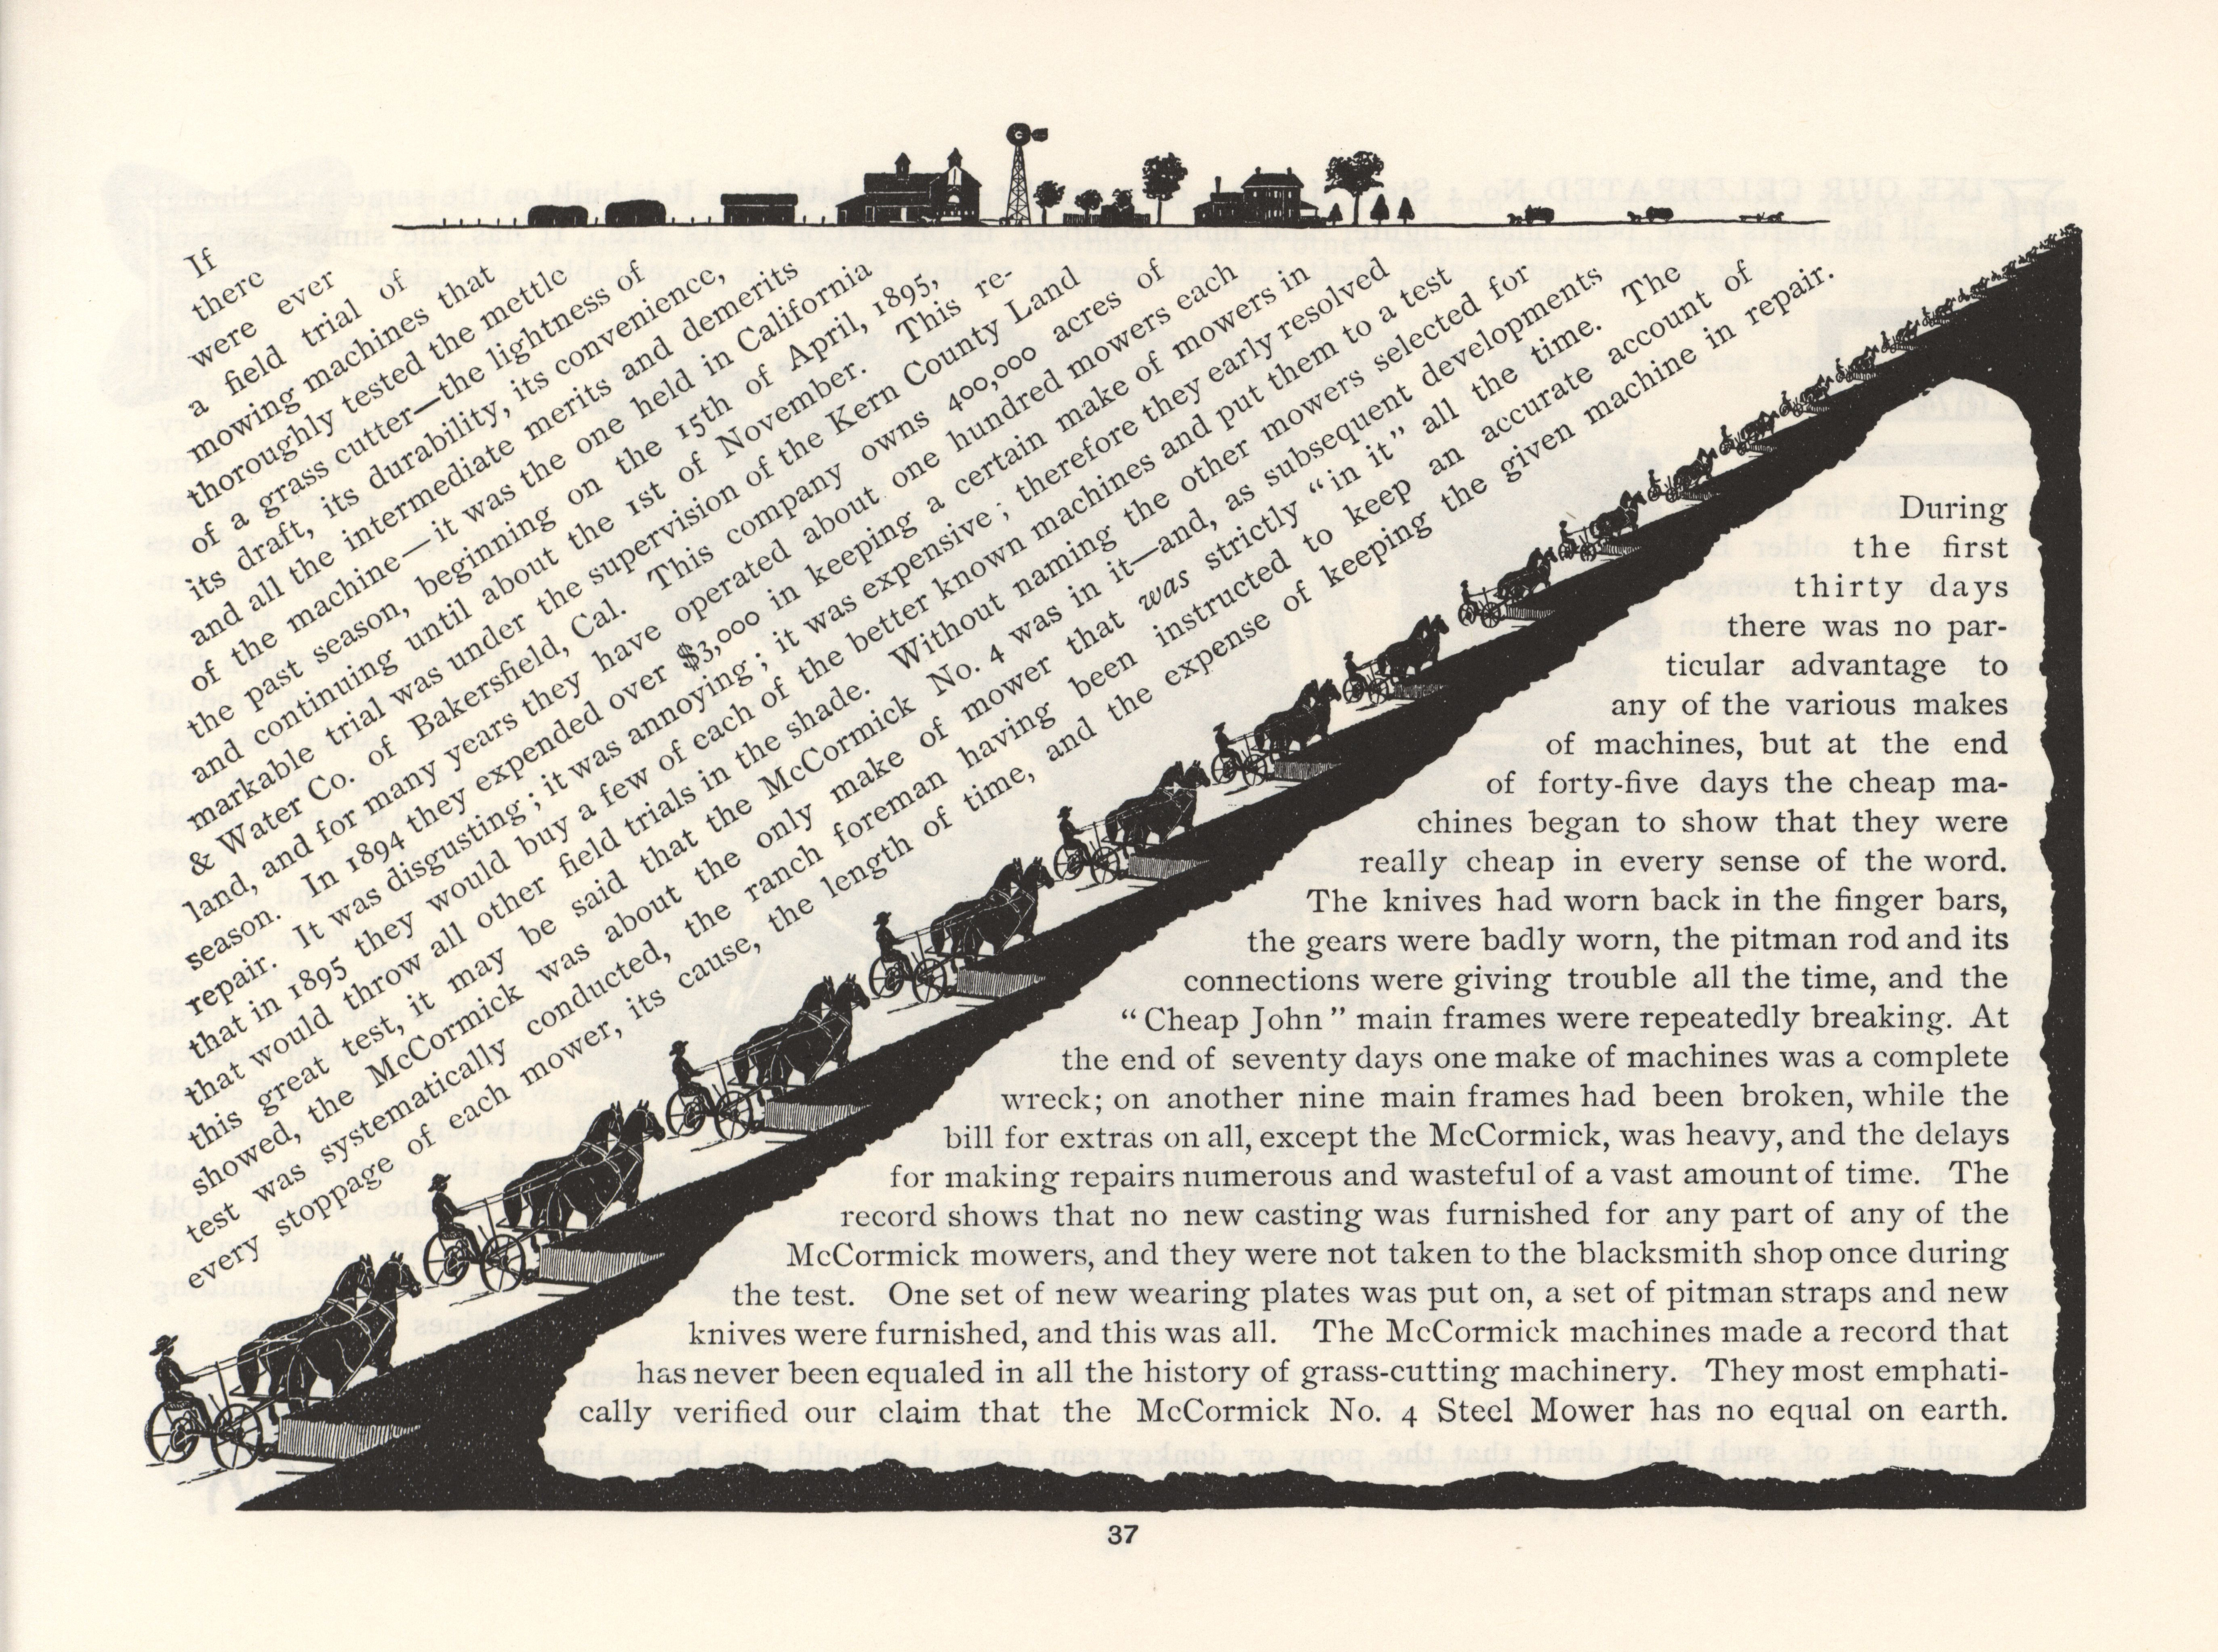 If
there
were ever
a field trial of
mowing machines that
thoroughly tested the mettle
of a grass cutter—the lightness of
its draft, its durability, its convenience,
and all the intermediate merits and demerits
of the machine—it was the one held in California
the past season, beginning on the 15th of April, 1895,
and continuing until about the 1st of November. This re-
markable trial was under the supervision of the Kern County Land
& Water Co. of Bakersfield, Cal. This company owns 400,000 acres of
land, and for many years they have operated about one hundred mowers each
season. In 1894 they expended over $3,000 in keeping a certain make of mowers in
repair. It was disgusting; it was annoying; it was expensive; therefore they early resolved
that in 1895 they would buy a few of each of the better known machines and put them to a test
that would throw all other field trials in the shade. Without naming the other mowers selected for
this great test, it may be said that the McCormick No. 4 was in it—and, as subsequent developments
showed, the McCormick was about the only make of mower that was strictly “in it” all the time. The
test was systematically conducted, the ranch foreman having been instructed to keep an accurate account of
every stoppage of each mower, its cause, the length of time, and the expense of keeping the given machine in repair.
During
the first
thirty days
there was no par-
ticular advantage to
any of the various makes
of machines, but at the end
of forty-five days the cheap ma-
chines began to show that they were
really cheap in every sense of the word.
The knives had worn back in the finger bars,
the gears were badly worn, the pitman rod and its
connections were giving trouble all the time, and the
“Cheap John” main frames were repeatedly breaking. At
the end of seventy days one make of machines was a complete
wreck; on another nine main frames had been broken, while the
bill for extras on all, except the McCormick, was heavy, and the delays
for making repairs numerous and wasteful of a vast amount of time. The
record shows that no new casting was furnished for any part of any of the
McCormick mowers, and they were not taken to the blacksmith shop once during
the test. One set of new wearing plates was put on, a set of pitman straps and new
knives were furnished, and this was all. The McCormick machines made a record that
has never been equaled in all the history of grass-cutting machinery. They most emphati-
cally verified our claim that the McCormick No. 4 Steel Mower has no equal on earth.
37